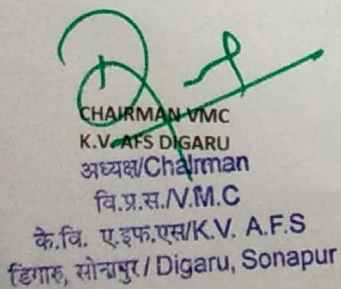 CHAIRMAN VMC
K.V. AFS DIGARU
अध्यक्ष/Chairman
वि.प्र.स./V.M.C
के.वि. ए.इफ.एस/K.V. A.F.S
डिगारु, सोनापुर / Digaru, Sonapur